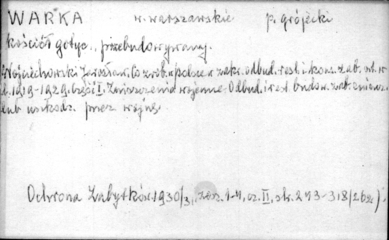 WARKA w. warszawskie p. grójecki
kościół gotyc., przebudowywany.
Wojciechowski Jarosław, Co zrob. w polsce w zakr. odbud. rest. i kons. zab. od. r.
1919-1929. Część I. Zniszczenia wojenne. Odbud. i rest. budow. zab. zniszcz.
lub uszkodz. przez wojnę.
Ochrona Zabytków 1930/31, zesz. 1-4, cz. II, str. 293-318